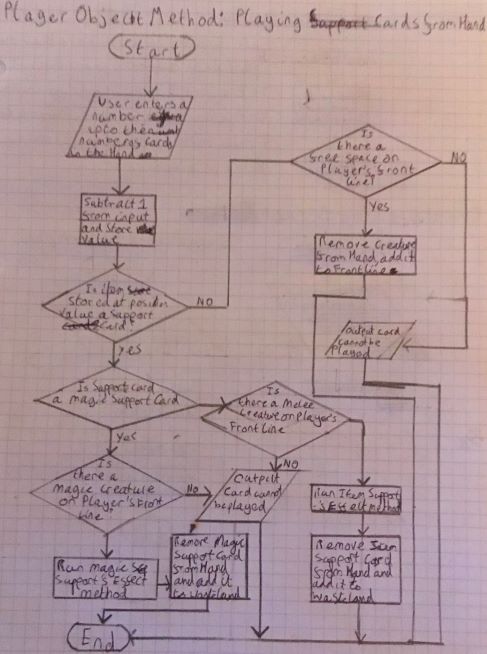 Player Object Method: Playing Support Cards from Hand
Start
User enters a
number
upto the
number of cards
in the Hand
Subtract 1
from input
and Store
Value
Is item
Stored at position
Value a Support
Card?
NO
Yes
Is
there a
free space on
Player's front
line?
NO
Yes
Remove Creature
from Hand, add it
to Frontline
Output card
cannot be
Played
Is Support card
a magic Support Card
Yes
Is
there a Melee
Creature on Player's
Front Line
NO
Is
there a
magic Creature
on Player's Front
Line?
No
Yes
Output
Card cannot
be played
Run Item Support
's Effect method
Run magic
Support's Effect
method
Remove Magic
Support Card
from Hand
and add it
to wasteland
Remove Item
Support Card
from Hand and
add it to
Wasteland
End